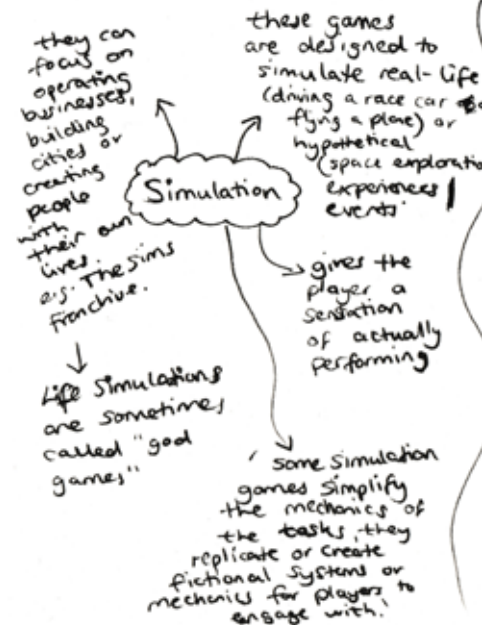 they can
focus on
operating
businesses,
building
cities or
creating
people
with
their own
lives.
e.g. The Sims
franchive.
Life Simulations
are sometimes
called "god
games"
Simulation
these games
are designed to
simulate real-life
(driving a race car
flying a plane) or
hypothetical
(space exploration
experiences /
events
gives the
player a
sensation
of actually
performing
' some simulation
games simplify
the mechanics of
the tasks, they
replicate or create
fictional systems or
mechanics for players to
engage with.'